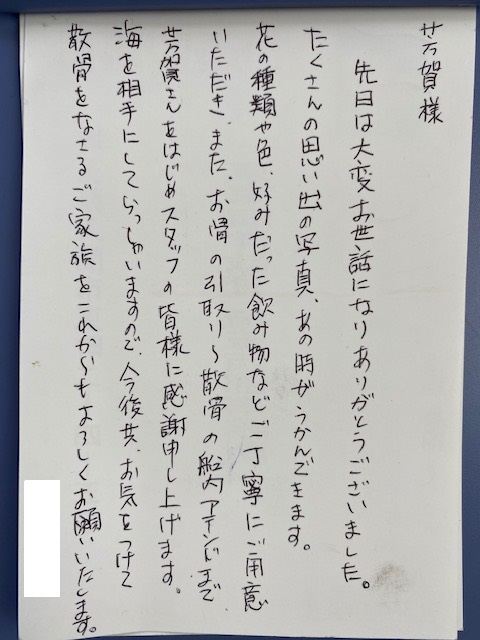 芳賀様
先日は大変お世話になりありがとうございました。
たくさんの思い出の写真、あの時がうかんできます。
花の種類や色、好みだった飲み物などご丁寧にご用意
いただき、また、お骨の引取り〜散骨の船内アテンドまで
芳賀さんをはじめスタッフの皆様に感謝申し上げます。
海を相手にしてらっしゃいますので、今後共、お気をつけて
散骨をなさるご家族をこれからもよろしくお願いいたします。